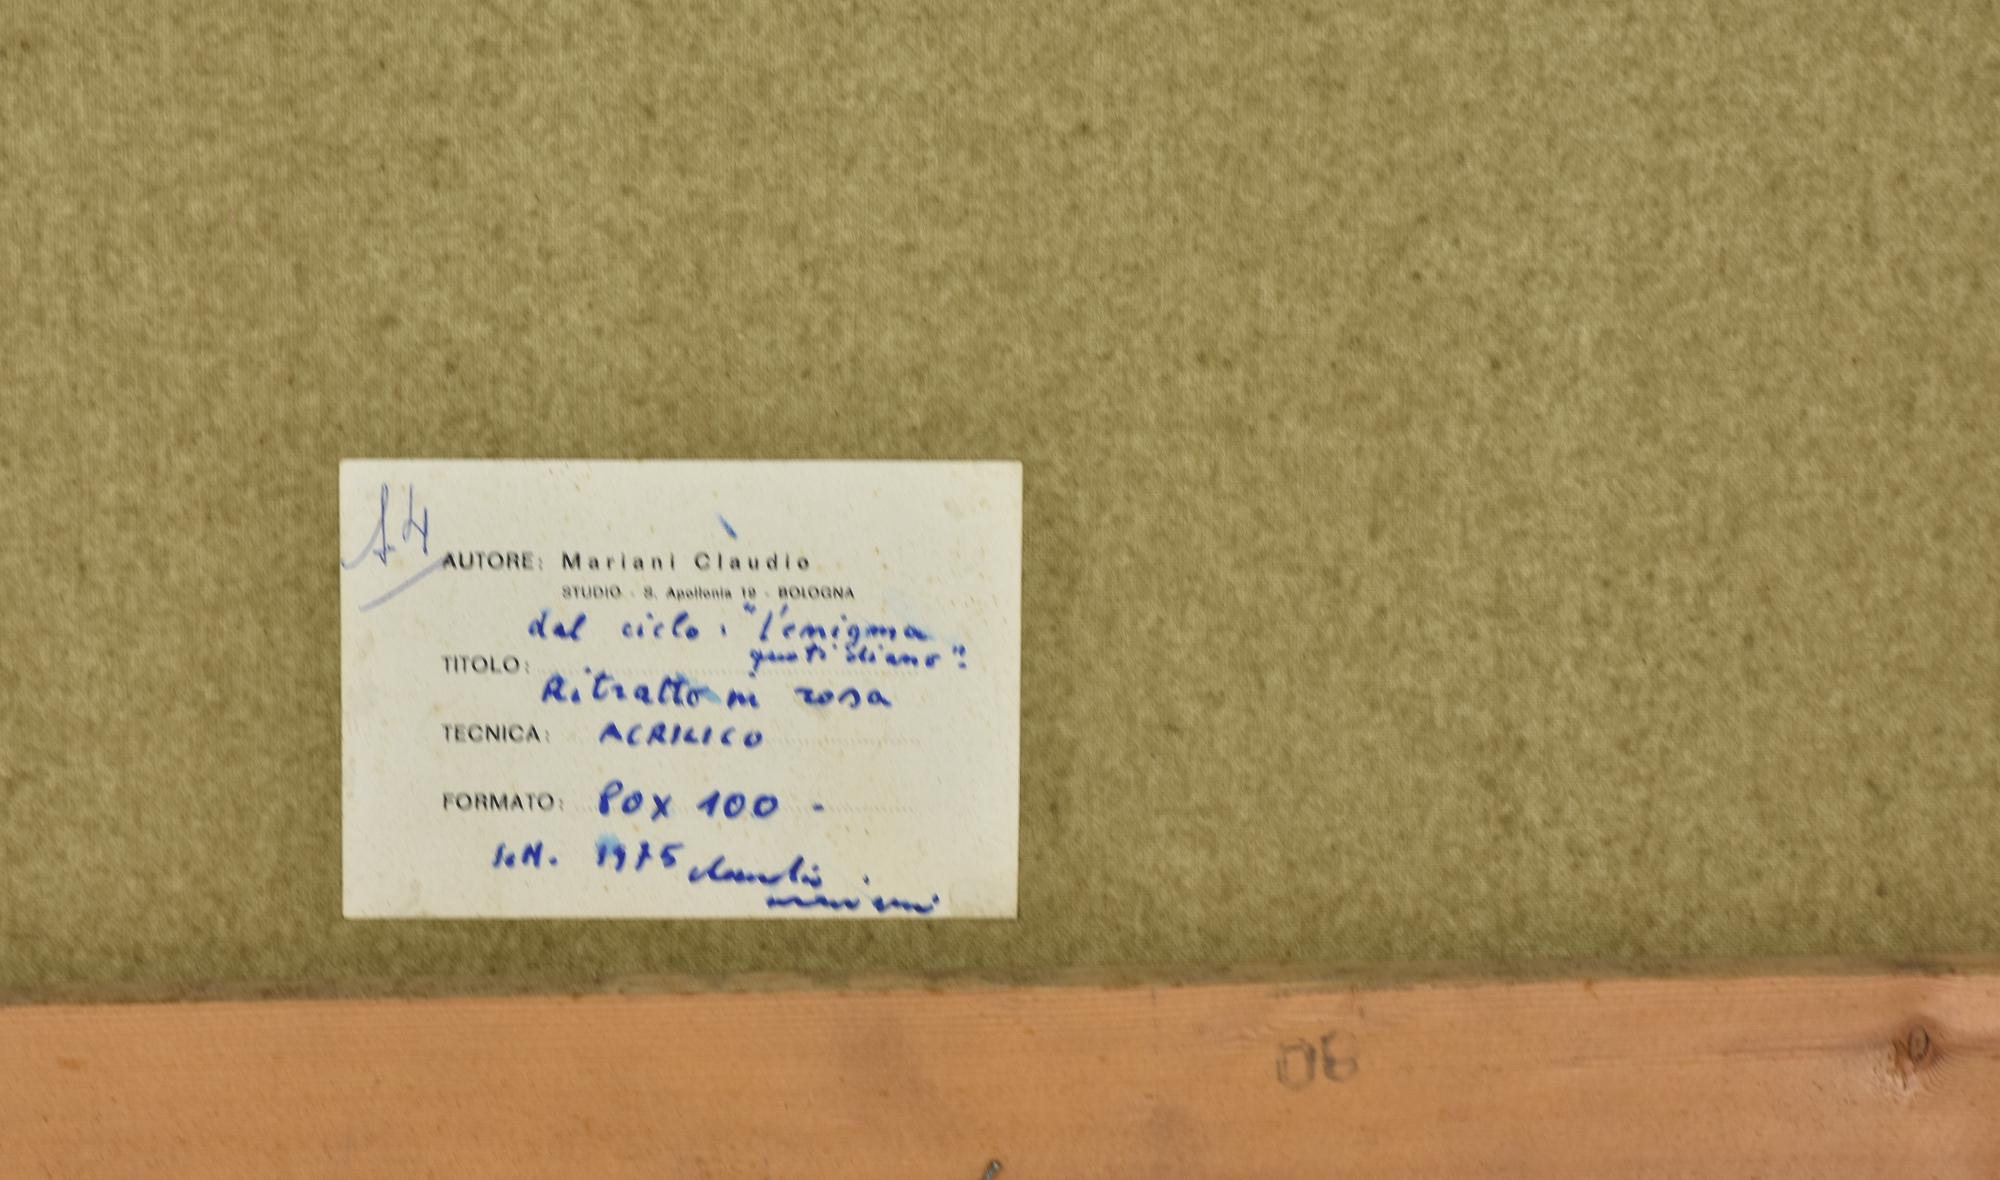 14
AUTORE: Mariani Claudio
STUDIO - S. Apollonia 19 - BOLOGNA
dal ciclo: "L'enigma
quotidiano":
TITOLO:
Ritratto in rosa
TECNICA: ACRILICO
FORMATO: 80X 100 -
1975 Claudio
mariani